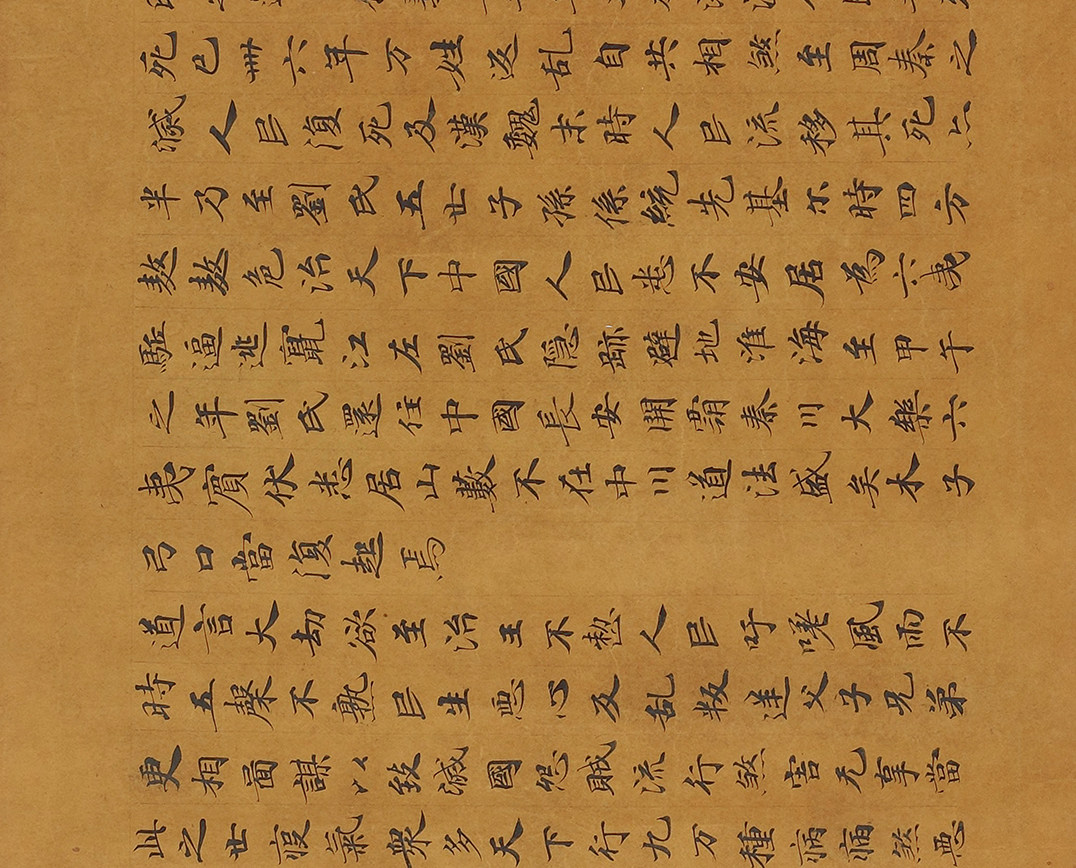 死巳卌六年万姓返乱自共相煞至周秦之
滅人民復死及漢魏末時人民流移其死亡
半乃至劉氏五世子孫係統先基尒時四方
嗷嗷危治天下中國人民悉不安居為六夷
駈逼逃竄江左劉氏隠跡避地淮海至甲午
之年劉氏還住中國長安開霸秦川大樂六
夷賓伏悉居山藪不在中川道法盛矣木子
弓口當復起焉
道言大劫欲至治王不整人民吁嗟風雨不
時五穀不熟民生惡心及乱叛逆父子兄弟
更相啚謀以致滅國怨賊流行煞害无辜當
此之世疫氣衆多天下行九万種病病煞惡